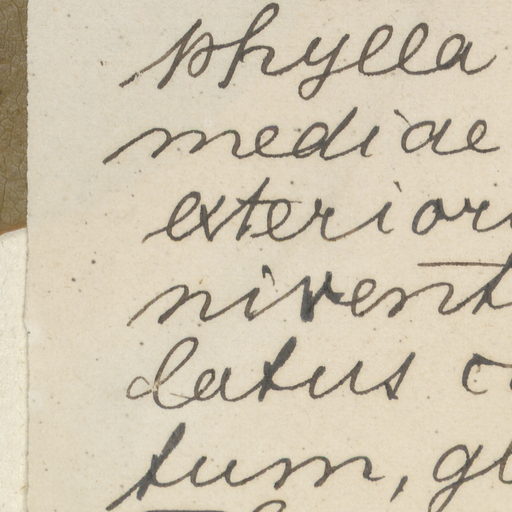 phylla
mediae
exteriori
nivent
latus c
tum, gl